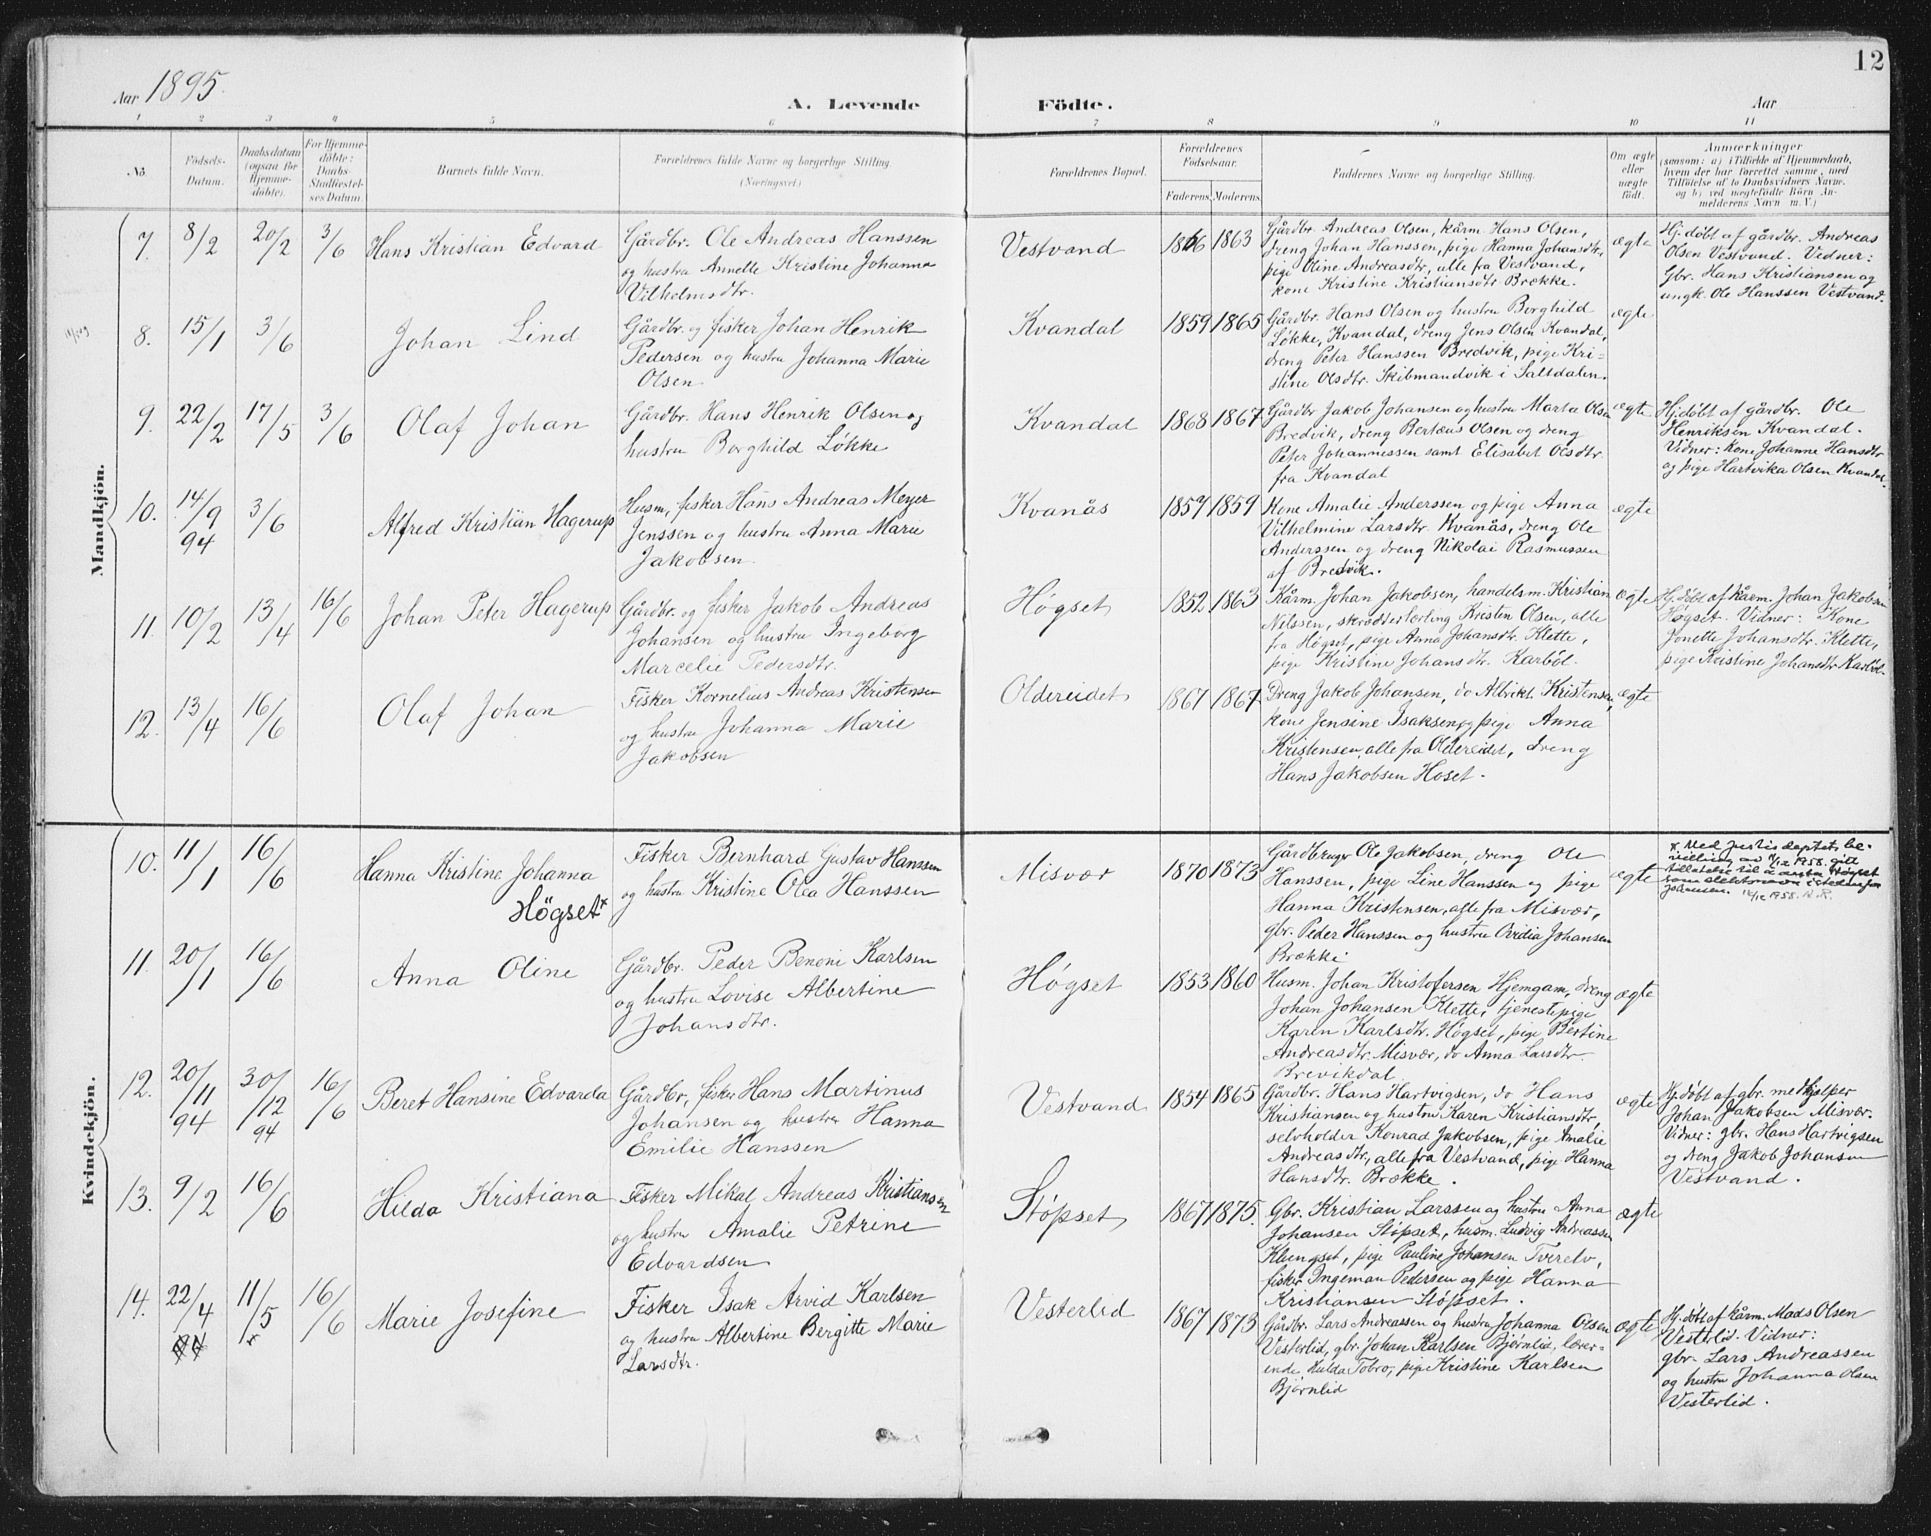 12
Aar 1895.
A. Levende
Födte.
Aar
1 2 3 4 5 6 7 8 9 10 11
No.
Födsels-
Datum.
Daabsdatum
(ogsaa for
Hjemme-
döbte).
For Hjemme-
döbte:
Daabs-
Stadfæstel-
ses Datum.
Barnets fulde Navn.
Forældrenes fulde Navne og borgerlige Stilling.
(Næringsvei)
Forældrenes Bopæl.
Forældrenes
Födselsaar.
Faderens.
Moderens.
Faddernes Navne og borgerlige Stilling.
Om ægte
eller
uægte
födt.
Anmærkninger
(saasom: a) i Tilfælde af Hjemmedaab,
hvem der har forrettet samme, med
Tilföielse af to Daabsvidners Navne,
og b) ved uægtefödte Börn An-
melderens Navn m. V.)
Mandkjön.
7. 8/2 20/2 3/6
Hans Kristian Edvard
Gårdbr. Ole Andreas Hanssen
og hustru Annette Kristine Johanna
Vilhelmsdtr.
Vestvand
1866 1863
Gårdbr. Andreas Olsen, kårm. Hans Olsen,
dreng Johan Hanssen, pige Hanna Johansdtr,
pige Oline Andreasdtr, alle fra Vestvand,
kone Kristine Kristiansdtr Brække.
ægte
Hj. døbt af gårdbr. Andreas
Olsen Vestvand. Vidner:
Gbr. Hans Kristiansen og
ungk. Ole Hanssen Vestvand.
8. 15/1 3/6
Johan Lind
Gårdbr. og fisker Johan Henrik
Pedersen og hustru Johanna Marie
Olsen
Kvandal
1859 1865
Gårdbr. Hans Olsen og hustru Borghild
Løkke, Kvandal, dreng Jens Olsen Kvandal,
dreng Peter Hanssen Bredvik, pige Kri-
stine Olsdtr. Skibmandvik i Saltdalen.
ægte
9. 22/2 17/5 3/6
Olaf Johan
Gårdbr. Hans Henrik Olsen og
hustru Borghild Løkke
Kvandal
1868 1867
Gårdbr Jakob Johansen og hustru Marta Olsen
Bredvik, dreng Bertæus Olsen og dreng
Peter Johannessen samt Elisabet Olsdtr
fra Kvandal
ægte
Hj. døbt af gårdbr. Ole
Henriksen Kvandal.
Vidner: kone Johanne Hansdtr
og pige Hartvika Olsen Kvandal.
10. 14/9 94 3/6
Alfred Kristian Hagerup
Husm, fisker Hans Andreas Meyer
Jenssen og hustru Anna Marie
Jakobsen
Kvanås
1857 1859
Kone Amalie Anderssen og pige Anna
Vilhelmine Larsdtr. Kvanås, dreng Ole
Anderssen og dreng Nikolai Rasmussen
af Bredvik.
ægte
11. 10/2 13/4 16/6
Johan Peter Hagerup
Gårdbr. og fisker Jakob Andreas
Johansen og hustru Ingeborg
Marcelie Pedersdtr.
Høgset
1852 1863
Kårm. Johan Jakobsen, handelsm. Kristian
Nilssen, skrædderlærling Kristen Olsen, alle
fra Høgset, pige Anna Johansdtr. Klette,
pige Kristine Johansdtr. Karbøl.
ægte
Hj. døbt af kårm. Johan Jakobsen
Høgset. Vidner: Kone
Jonette Johansdtr. Klette,
pige Kristine Johansdtr Karbøl.
12. 13/4 16/6
Olaf Johan
Fisker Kornelius Andreas Kristensen
og hustru Johanna Marie
Jakobsen
Oldereidet
1867 1867
Dreng Jakob Johansen, do Albrikt Kristensen,
kone Jensine Isaksen og pige Anna
Kristensen, alle fra Oldereidet, dreng
Hans Jakobsen Hoset.
ægte
Kvindekjön.
10. 11/1 16/6
Hanna Kristine Johanna
Högset*
Fisker Bernhard Gustav Hanssen
og hustru Kristine Olea Hanssen
Misvær
1870 1873
Gårdbruger Ole Jakobsen, dreng Ole
Hanssen, pige Line Hanssen og pige
Hanna Kristensen, alle fra Misvær,
gbr. Peder Hanssen og hustru Ovidia Johansen
Brække.
ægte
x Med justisdeptets be-
villing av 1958 gitt
tillatelse til å anta Høgset
som slektsnavn istedenfor
Johansen
11. 20/1 16/6
Anna Oline
Gårdbr. Peder Benoni Karlsen
og hustru Lovise Albertine
Johansdtr.
Høgset
1853 1860
Husm. Johan Kristofersen Hjemgam, dreng
Johan Johansen Klette, tjenestepige
Karen Karlsdtr. Høgset, pige Bertine
Andreasdtr. Misvær, do Anna Larsdtr
Brevikdal
ægte
12. 20/11 94 30/12 94 16/6
Beret Hansine Edvarda
Gårdbr, fisker Hans Martinus
Johansen og hustru Hanna
Emilie Hanssen
Vestvand
1854 1865
Gårdbr. Hans Hartvigsen, do Hans
Kristiansen og hustru Karen Kristiansdtr
selvholder Konrad Jakobsen, pige Amalie
Andreasdtr, alle fra Vestvand, pige Hanna
Hansdtr. Brække.
ægte
Hj. døbt af gbr. medhjelper
Johan Jakobsen Misvær.
Vidner: gbr. Hans Hartvigsen
og dreng Jakob Johansen
Vestvand.
13. 9/2 16/6
Hilda Kristiana
Fisker Mikal Andreas Kristiansen
og hustru Amalie Petrine
Edvardsen
Støpset
1867 1875.
Gbr. Kristian Larssen og hustru Anna
Johansen Støpset, husm. Ludvig Andreassen
Klungset, pige Pauline Johansen Tverelv,
fisker Ingeman Pedersen og pige Hanna
Kristiansen Støpset.
ægte
14. 22/4 11/5 16/6
Marie Josefine
Fisker Isak Arvid Karlsen
og hustru Albertine Bergitte Marie
Larsdtr.
Vesterlid
1867 1873
Gårdbr. Lars Andreassen og hustru Johanna Olsen
Vesterlid, gbr. Johan Karlsen Bjørnlid, lærer-
inde Hulda Tobro, pige Kristine Karlsen
Bjørnlid
ægte
Hj. døbt af kårm. Mads Olsen
Vesterlid. Vidner:
gbr. Lars Andreassen
og hustru Johanna Olsen
Vesterlid.